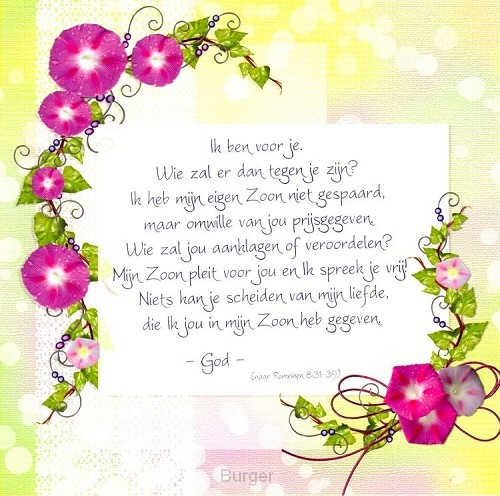 Ik ben voor je.
Wie zal er dan tegen je zijn?
Ik heb mijn eigen Zoon niet gespaard,
maar omwille van jou prijsgegeven.
Wie zal jou aanklagen of veroordelen?
Mijn Zoon pleit voor jou en Ik spreek je vrij!
Niets kan je scheiden van mijn liefde,
die Ik jou in mijn Zoon heb gegeven.
- God -
(naar Romeinen 8:31-39)
Burger